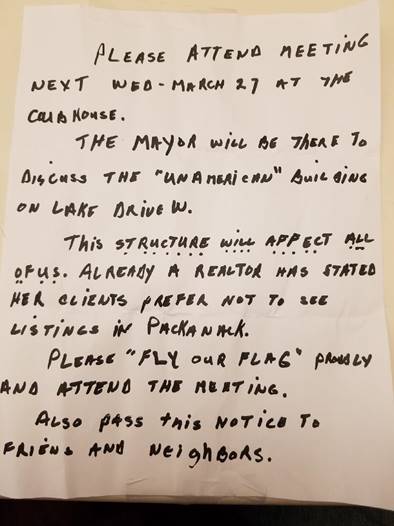 PLEASE ATTEND MEETING
NEXT WED-MARCH 27 AT THE
CLUBHOUSE.
THE MAYOR WILL BE THERE TO
DISCUSS THE "UNAMERICAN" BUILDING
ON LAKE DRIVE W.
THIS STRUCTURE WILL AFFECT ALL
OF US. ALREADY A REALTOR HAS STATED
HER CLIENTS PREFER NOT TO SEE
LISTINGS IN PACKANACK.
PLEASE "FLY OUR FLAG" PROUDLY
AND ATTEND THE MEETING.
ALSO PASS THIS NOTICE TO
FRIENS AND NEIGHBORS.